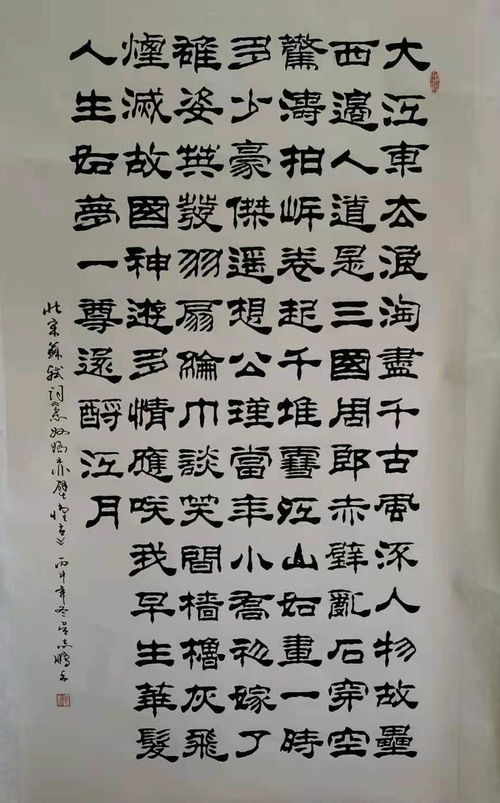 大江東去浪淘盡千古風流人物故壘
西邊人道是三國周郎赤壁亂石穿空
驚濤拍岸卷起千堆雪江山如畫一時
多少豪傑遥想公瑾當年小喬初嫁了
雄姿英發羽扇綸巾談笑間檣櫓灰飛
煙滅故國神遊多情應笑我早生華髮
人生如夢一尊還酹江月
北宋蘇軾詞《念奴嬌赤壁懷古》丙申年冬吴志鵬書